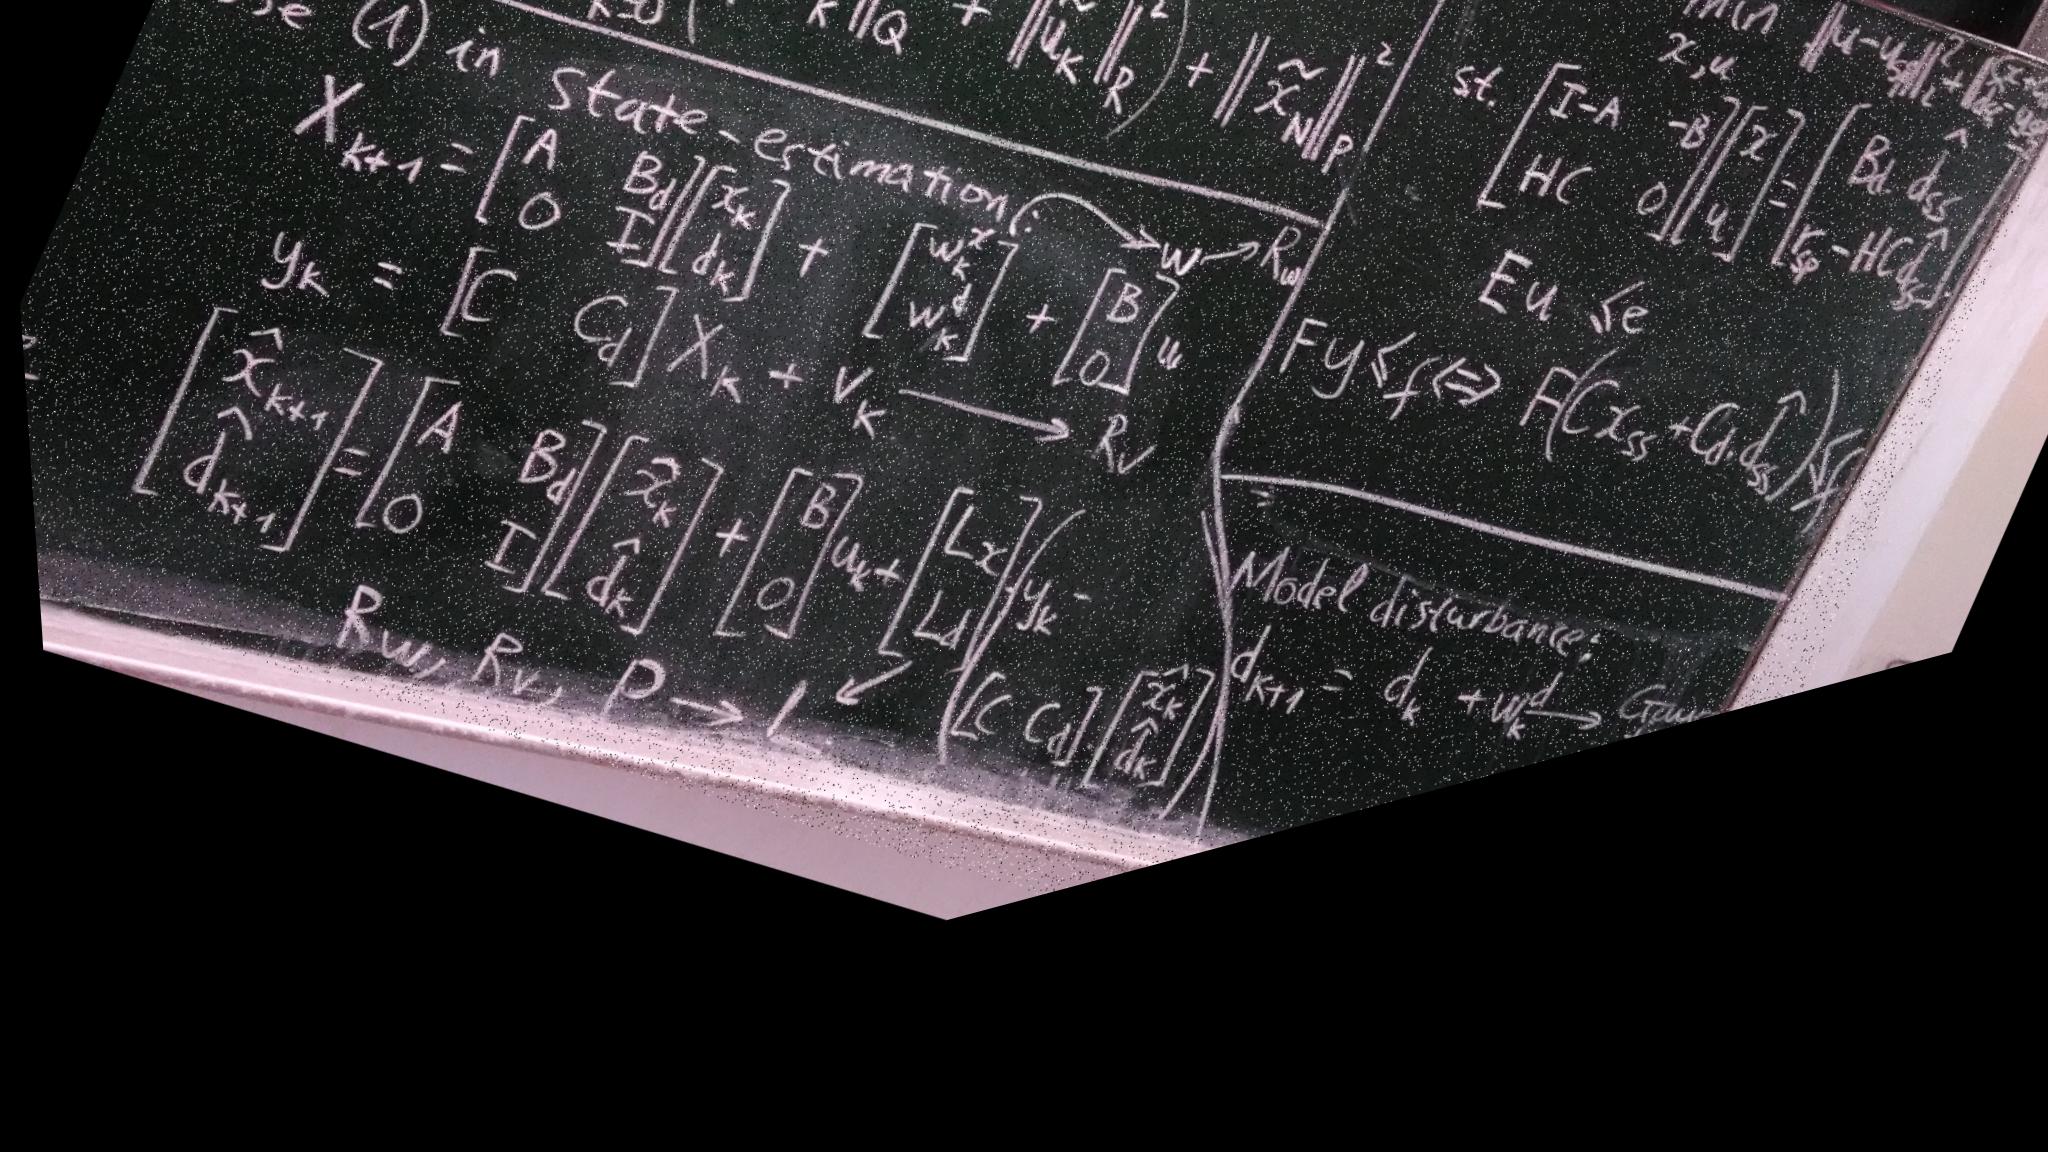 (1) in state-estimation:
X_{k+1} = [A B_d; 0 I] [x_k; d_k] + [w_k^x; w_k^d] + [B; 0] u
→ w → R_w
y_k = [C C_d] X_k + v_k → R_v
[x̂_{k+1}; d̂_{k+1}] = [A B_d; 0 I] [x̂_k; d̂_k] + [B; 0] u_k + [L_x; L_d] (y_k -
[C C_d] [x̂_k; d̂_k])
R_w, R_v, P → L
‖Q + ‖ũ_k‖²_R) + ‖x̃_N‖²_P
min x,u
st. [I-A -B; HC 0] [x; u] = [B_d d̂_ss; r_sp - HC_d d̂_ss]
Eu ≤ e
Fy ≤ f ⟺ F(Cx_ss + C_d d̂_ss) ≤ f
Model disturbance:
d_{k+1} = d_k + w_k^d →